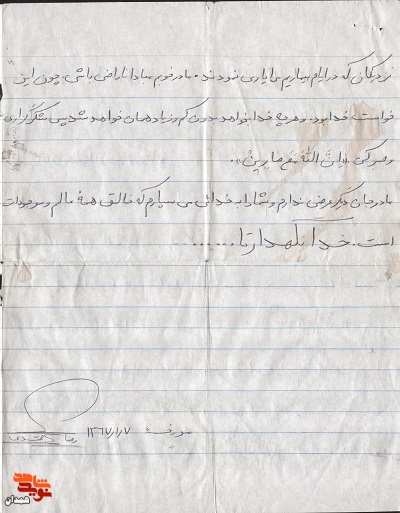 نزدیکانی که در ایام بیماریم مرا یاری نمودند. مادر خوبم مبادا ناراضی باشی، چون این
خواست خدا بود. و هر چه خدا بخواهد بدون کم و زیاد همان خواهد شد پس شکرگزاری
و صبر کن. «ان الله مع صابرین».
مادر جان دیگر عرضی ندارم و شما را به خدائی می سپارم که خالق همهٔ عالم و موجودات
است. خدا نگهدار تا ......
مورخه ۱۳۶۷/۱/۷
رضا
شاهد
نوید
سمنان